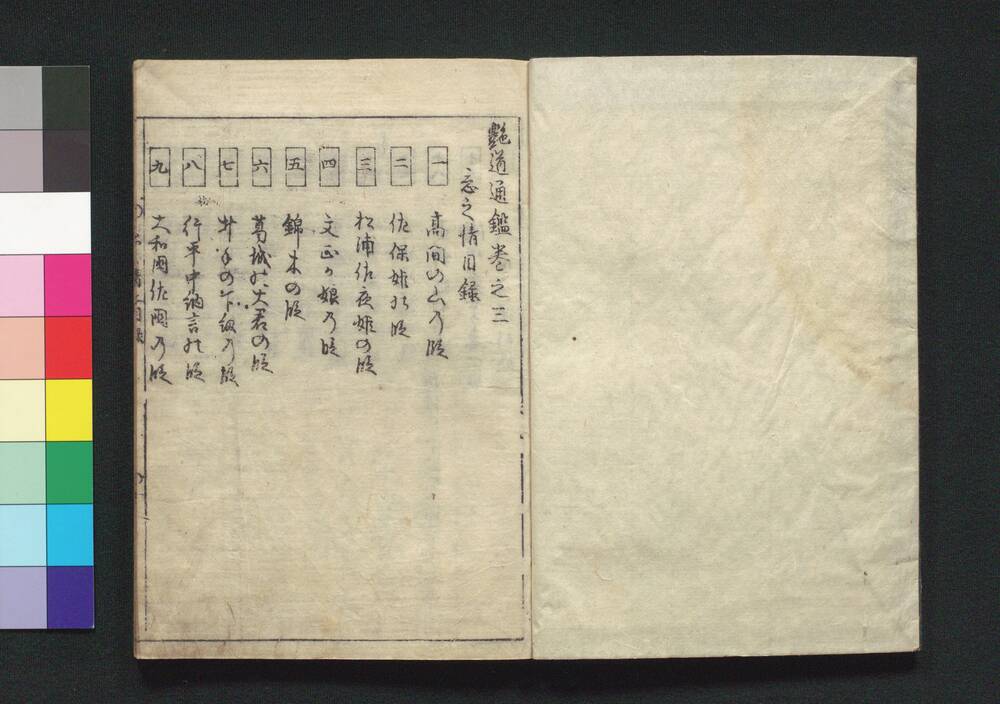 艷道通鑑巻之三
之情目録
一 高間の山乃段
二 佐保姫の段
三 松浦佐夜姫の段
四 文正が娘乃段
五 錦木の段
六 葛城の大君の段
七 井手の下紐乃段
八 行平中納言の段
九 大和國佐國乃段